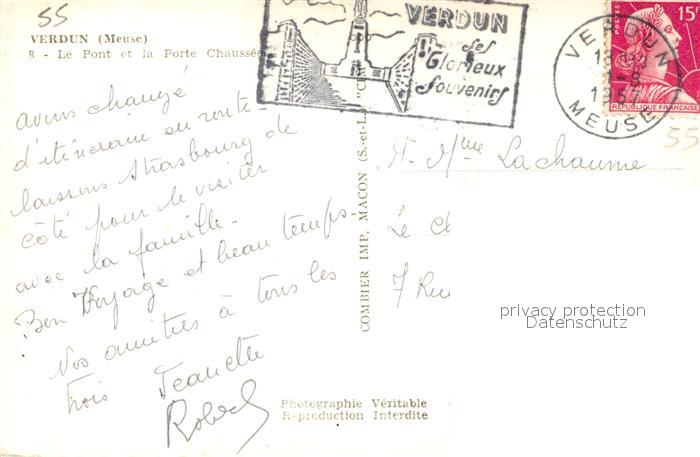 55
VERDUN (Meuse)
8 - Le Pont et la Porte Chaussée
avons changé
d'itinéraire en route -
laissons Strasbourg de
côté pour le visiter
avec la famille -
Bon Voyage et beau temps -
Nos amitiés à tous les
trois Jeanette
Robert
COMBIER IMP. MACON (S.-et-L.) "C
Photographie Véritable
Reproduction Interdite
VERDUN
Ses
Glorieux
Souvenirs
VERDUN
1957
MEUSE
POSTES
15F
REPUBLIQUE FRANCAISE
55
M. Mme Lachaume
Le
7 Rue
privacy protection
Datenschutz